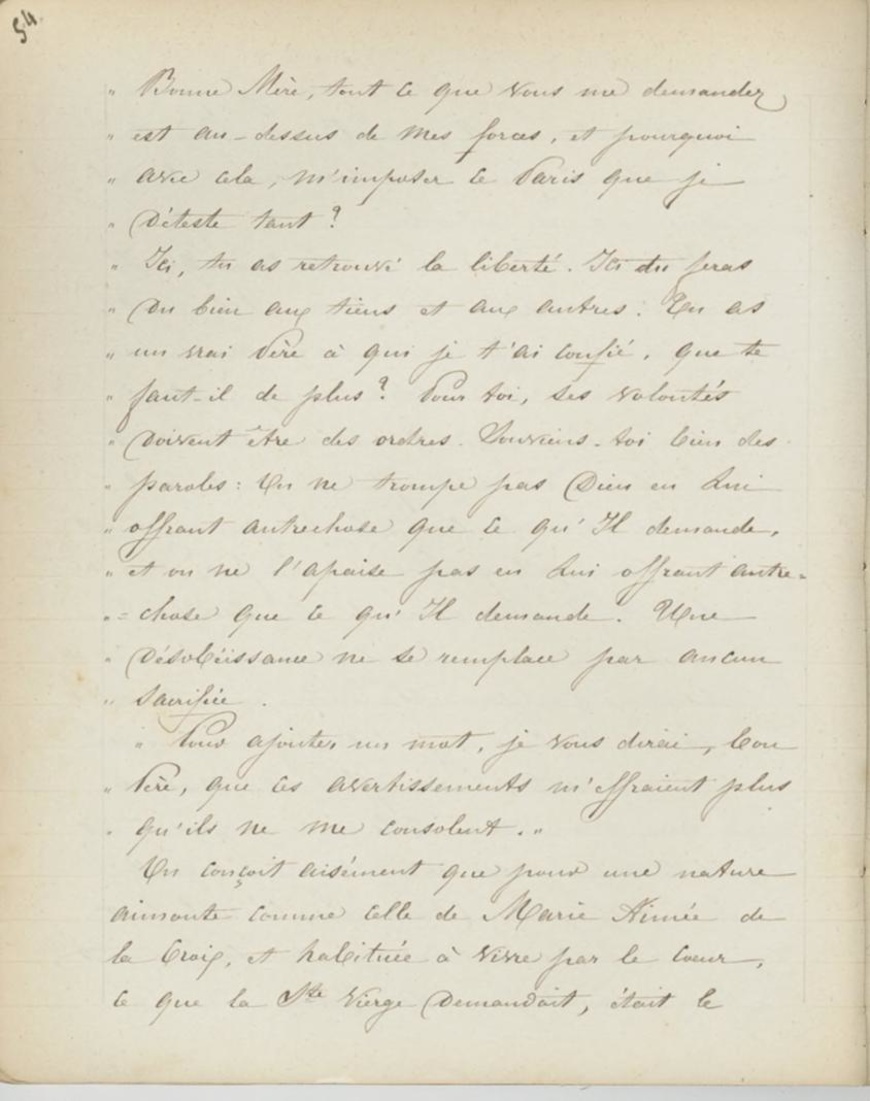 54.
" Bonne Mère, tout ce que vous me demandez
" est au-dessus de mes forces, et pourquoi
" avec cela, m'imposer ce Paris que je
" déteste tant ?
" Ici, tu as retrouvé la liberté. Ici tu feras
" du bien aux tiens et aux autres. Tu as
" un vrai Père à qui je t'ai confié, que te
" faut-il de plus ? Pour toi, ses volontés
" doivent être des ordres. Souviens-toi bien des
" paroles : On ne trompe pas Dieu en Lui
" offrant autrechose que ce qu'Il demande,
" et on ne l'apaise pas en Lui offrant autre-
" = chose que ce qu'Il demande. Une
" désobéissance ne se remplace par aucun
" sacrifice.
" Pour ajouter un mot, je vous dirai, bon
" Père, que ces avertissements m'effraient plus
" qu'ils ne me consolent. "
On conçoit aisément que pour une nature
aimante comme celle de Marie Aimée de
la Croix, et habituée à vivre par le coeur,
ce que la Ste Vierge demandait, était le